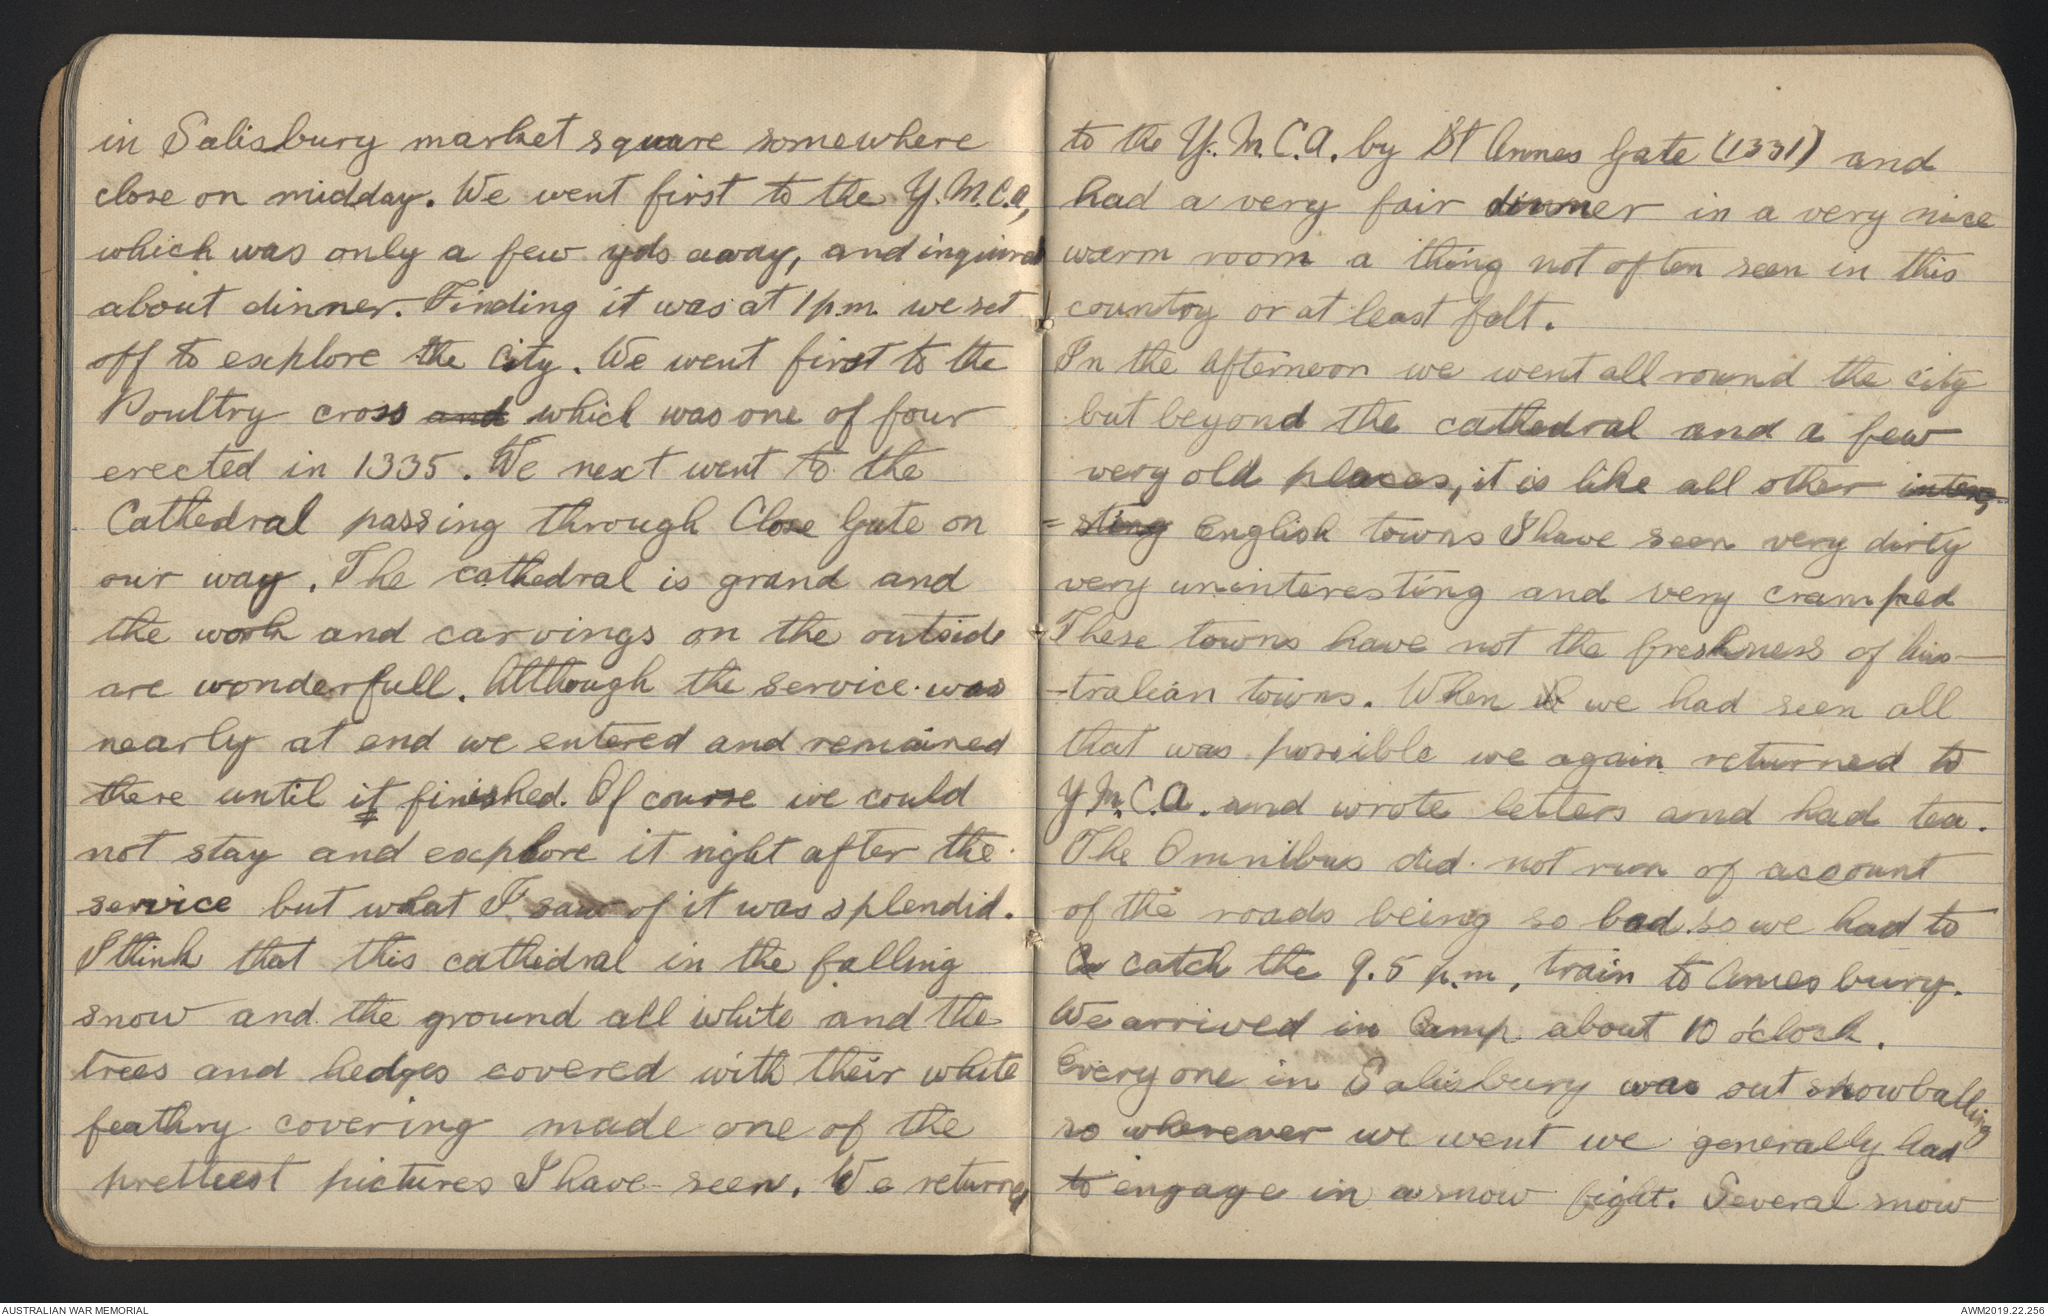 in Salisbury market square somewhere
close on midday. We went first to the Y.M.C.A,
which was only a few yds away, and inquired
about dinner. Finding it was at 1 p.m. we set
off to explore the City. We went first to the
Poultry cross and which was one of four
erected in 1335. We next went to the
Cathedral passing through Close Gate on
our way. The cathedral is grand and
the work and carvings on the outside
are wonderfull. Although the service was
nearly at end we entered and remained
there until it finished. Of course we could
not stay and explore it right after the
service but what I saw of it was splendid.
I think that this cathedral in the falling
snow and the ground all white and the
trees and hedges covered with their white
feathry covering made one of the
prettiest pictures I have seen. We returned
to the Y.M.C.A. by St Annes Gate (1331) and
had a very fair dinner in a very nice
warm room a thing not often seen in this
country or at least felt.
In the afternoon we went all round the city
but beyond the cathedral and a few
very old places, it is like all other intere-
=sting English towns I have seen very dirty
very uninteresting and very cramped
These towns have not the freshness of Aus-
-tralian towns. When we had seen all
that was possible we again returned to
Y.M.C.A. and wrote letters and had tea.
The Omnibus did not run of account
of the roads being so bad so we had to
catch the 9.5 p.m. train to Amesbury.
We arrived in Camp about 10 o'clock.
Every one in Salisbury was out snowballing
so wherever we went we generally had
to engage in a snow fight. Several snow
AUSTRALIAN WAR MEMORIAL
AWM2019.22.256